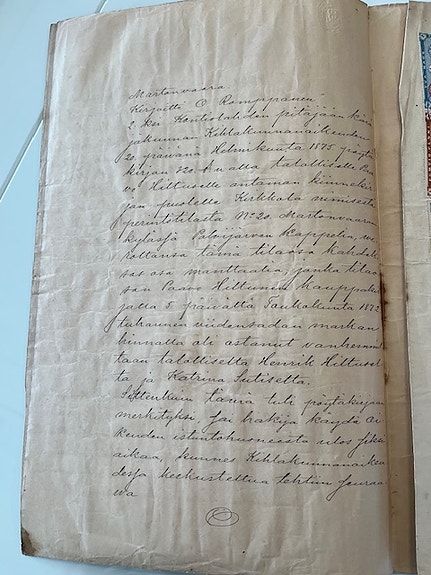 Martonvaara
Kirjoitti O Romppanen
2. Kontiolahden pitäjään
jakunnan Kihlakunnanoikeuden
20 päivänä Helmikuuta 1875
kirjan 220 § alla talolliselle Paa
vo Hiltuselle antaman kiinnekir
jan puolelle Kirkkola nimisestä
perintötilasta No 20. Martonvaaran
kylässä Polvijärven kappelia,
tämä tilaosa kahdek
sas osa manttaalia, jonka tilao
san Paavo Hiltunen kauppakir
jalla 5 päivältä Toukokuuta 1872
tuhannen viidensadan markan
hinnalla oli ostanut vanhemmil
taan talollisetta Henrik Hiltusel
ta ja Katrina Sutiselta.
Sittenkuin tämä tuli pöytäkirjaan
merkityksi sai hakija käydä Oi
keuden istuntohuoneesta ulos joksi
aikaa, kunnes Kihlakunnanoikeu
dessa keskusteltua tehtiin seuraa
va